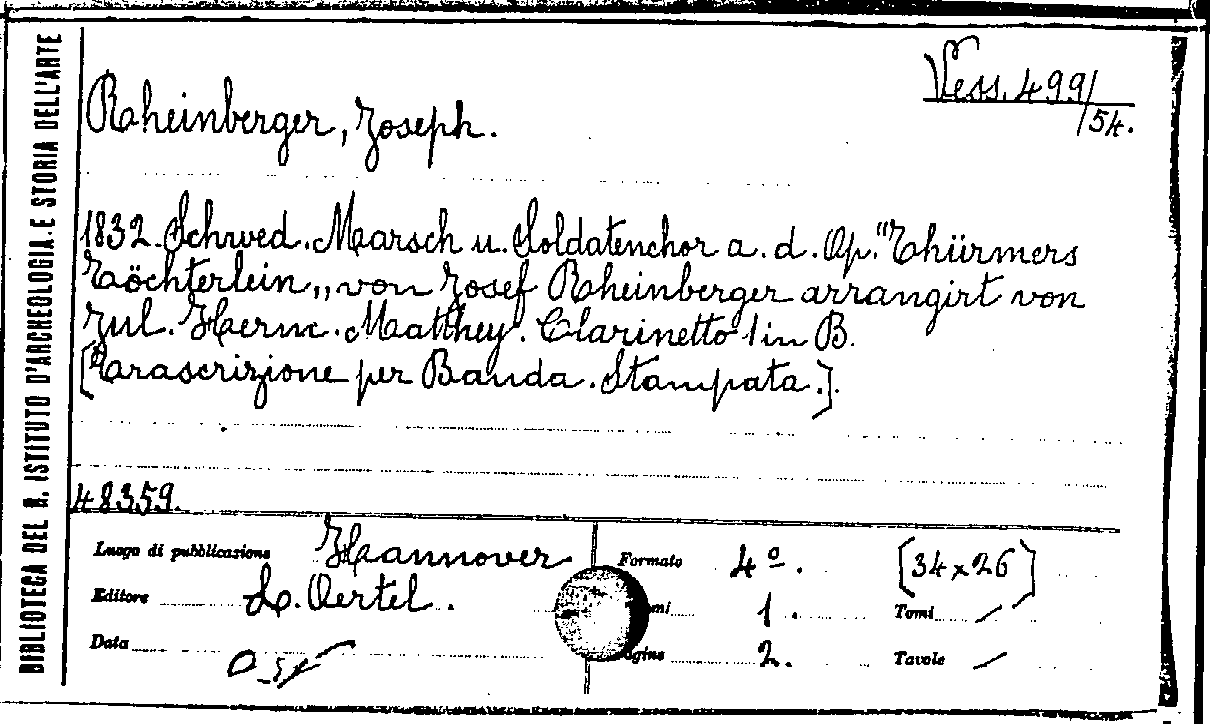 BIBLIOTECA DEL R. ISTITUTO D'ARCHEOLOGIA E STORIA DELL'ARTE
Vess. 499/
/54.
Rheinberger, Joseph.
1832. Schwed. Marsch u. Soldatenchor a. d. Op. "Thürmers
Töchterlein„ von Josef Rheinberger arrangirt von
Jul. Herm. Matthey. Clarinetto 1 in B.
[Trascrizione per Banda. Stampata.].
48359.
Luogo di pubblicazione Hannover Formato 4º. [34x26]
Editore L. Oertel. 1. Tomi
Data 2. Tavole